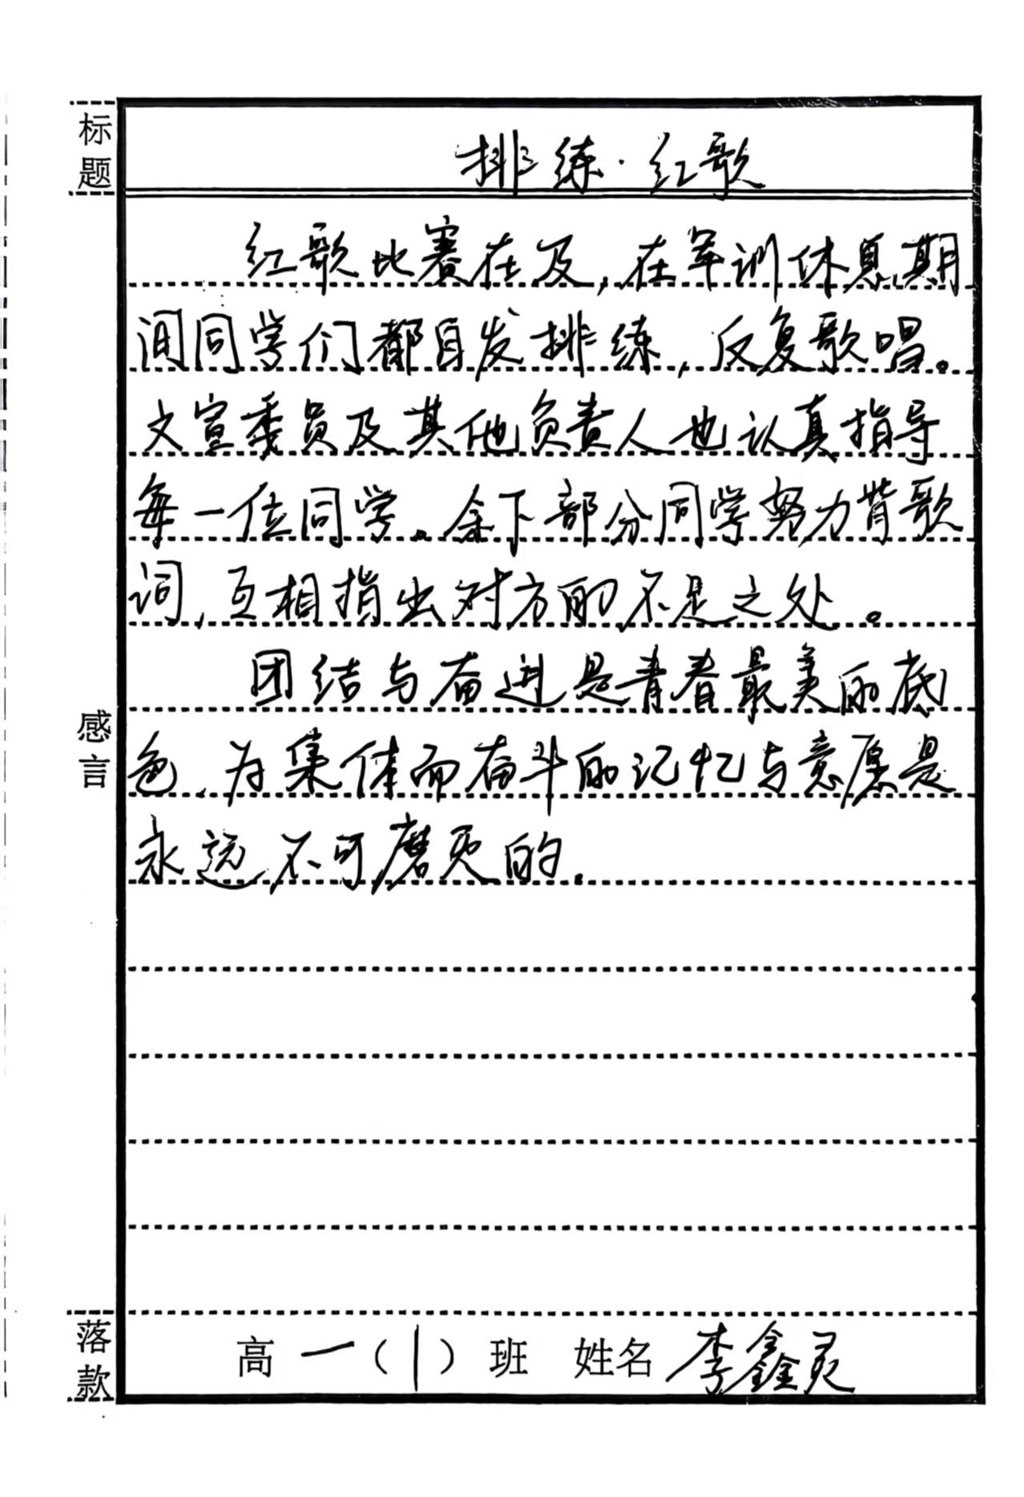 标题
排练·红歌
红歌比赛在及,在军训休息期
间同学们都自发排练,反复歌唱。
文宣委员及其他负责人也认真指导
每一位同学。余下部分同学努力背歌
词,互相指出对方的不足之处。
团结与奋进是青春最美的底
色,为集体而奋斗的记忆与意愿是
永远不可磨灭的.
感言
落款
高一(1)班 姓名 李鑫灵